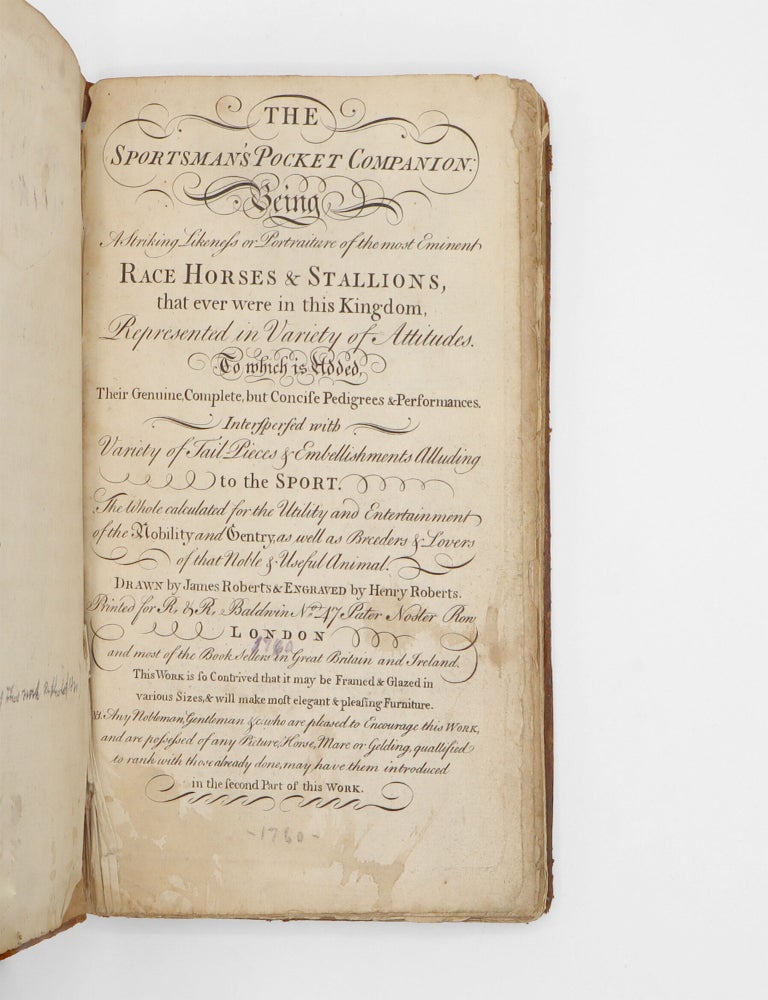 THE
SPORTSMAN'S POCKET COMPANION:
Being
A Striking Likeneſs or Portraiture of the most Eminent
RACE HORSES & STALLIONS,
that ever were in this Kingdom,
Represented in Variety of Attitudes.
To which is Added,
Their Genuine, Complete, but Conciſe Pedigrees & Performances.
Interſperſed with
Variety of Tail-Pieces & Embellishments Alluding
to the SPORT.
The Whole calculated for the Utility and Entertainment
of the Nobility and Gentry, as well as Breeders & Lovers
of that Noble & Useful Animal.
DRAWN by James Roberts & ENGRAVED by Henry Roberts.
Printed for R. & R. Baldwin No. 47 Pater Noster Row
LONDON
1760
and most of the Book Sellers in Great Britain and Ireland.
This WORK is ſo Contrived that it may be Framed & Glazed in
various Sizes, & will make moſt elegant & pleaſing Furniture.
NB. Any Nobleman, Gentleman &c. who are pleased to Encourage this WORK,
and are poſseſsed of any Picture, Horse, Mare or Gelding, quallified
to rank with those already done, may have them introduced
in the ſecond Part of this WORK.
-1760-
this work